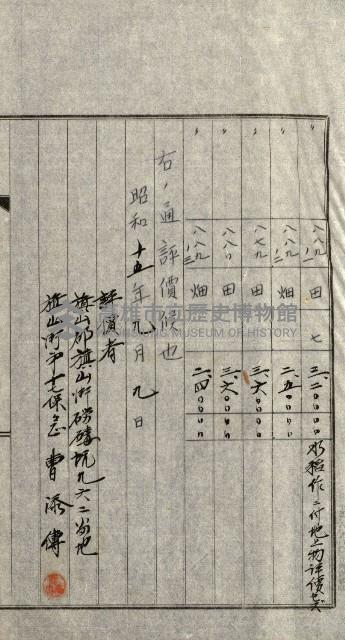 〃 八八九ノ一 田 七 三、二〇〇〇〇 水稲作ニ付地上物評價ヲ
〃 八八九ノ二 畑 二、五〇〇〇
〃 八七九 田 三、六〇〇〇
〃 八八〇 田 三、六〇〇〇
〃 八八九ノ三 畑 二、四〇〇〇
右ノ通評價候也
昭和十五年九月九日
評價者
旗山郡旗山街磅磅坑九六二番地
旗山街第十七保正 曹添傳
高雄市立歷史博物館
KAOHSIUNG MUSEUM OF HISTORY